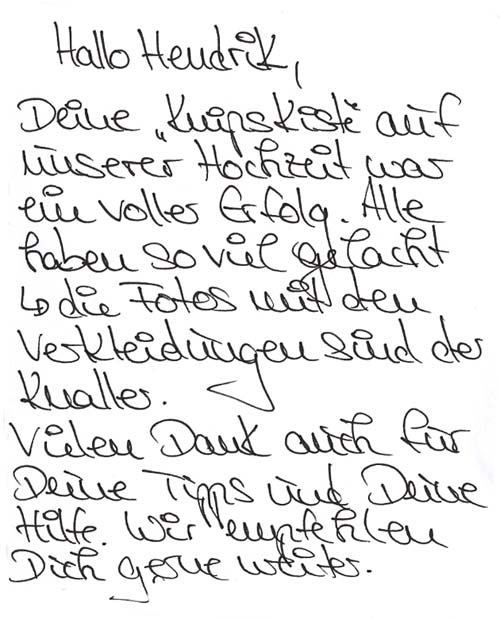 Hallo Hendrik,
Deine „Knipskiste" auf
unserer Hochzeit war
ein voller Erfolg. Alle
haben so viel gelacht
↳ die Fotos mit den
Verkleidungen sind der
Knaller.
Vielen Dank auch für
Deine Tipps und Deine
Hilfe. Wir empfehlen
Dich gerne weiter.